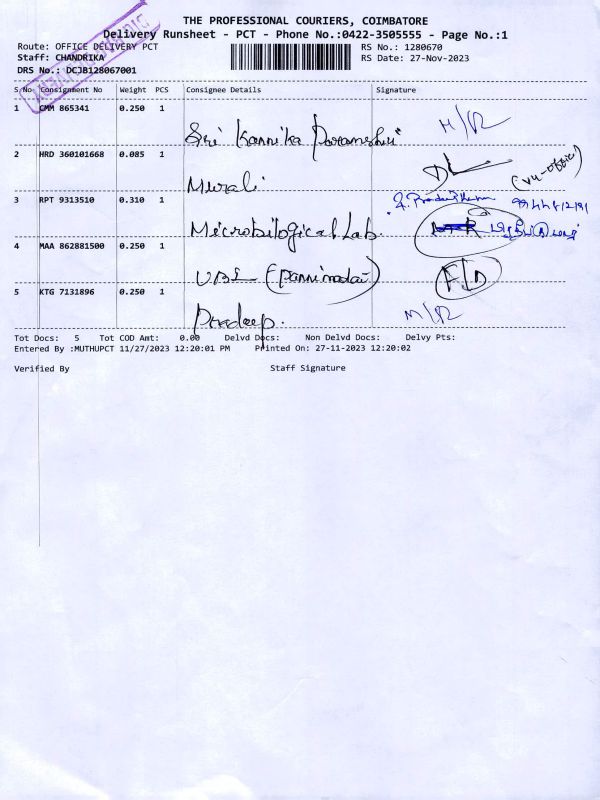 THE PROFESSIONAL COURIERS, COIMBATORE
Delivery Runsheet - PCT - Phone No.:0422-3505555 - Page No.:1
Route: OFFICE DELIVERY PCT
RS No.: 1280670
Staff: CHANDRIKA
RS Date: 27-Nov-2023
DRS No.: DCJB128067001
S No Consignment No Weight PCS Consignee Details Signature
1 CMM 865341 0.250 1
Sri Kannika Parameshri
M/R
2 HRD 360101668 0.085 1
Murali
3 RPT 9313510 0.310 1
Microbilogical Lab.
4 MAA 862881500 0.250 1
UBI (Pannimadai)
F/D
5 KTG 7131896 0.250 1
Pradeep.
M/R
Tot Docs: 5 Tot COD Amt: 0.00 Delvd Docs: Non Delvd Docs: Delvy Pts:
Entered By :MUTHUPCT 11/27/2023 12:20:01 PM Printed On: 27-11-2023 12:20:02
Verified By Staff Signature